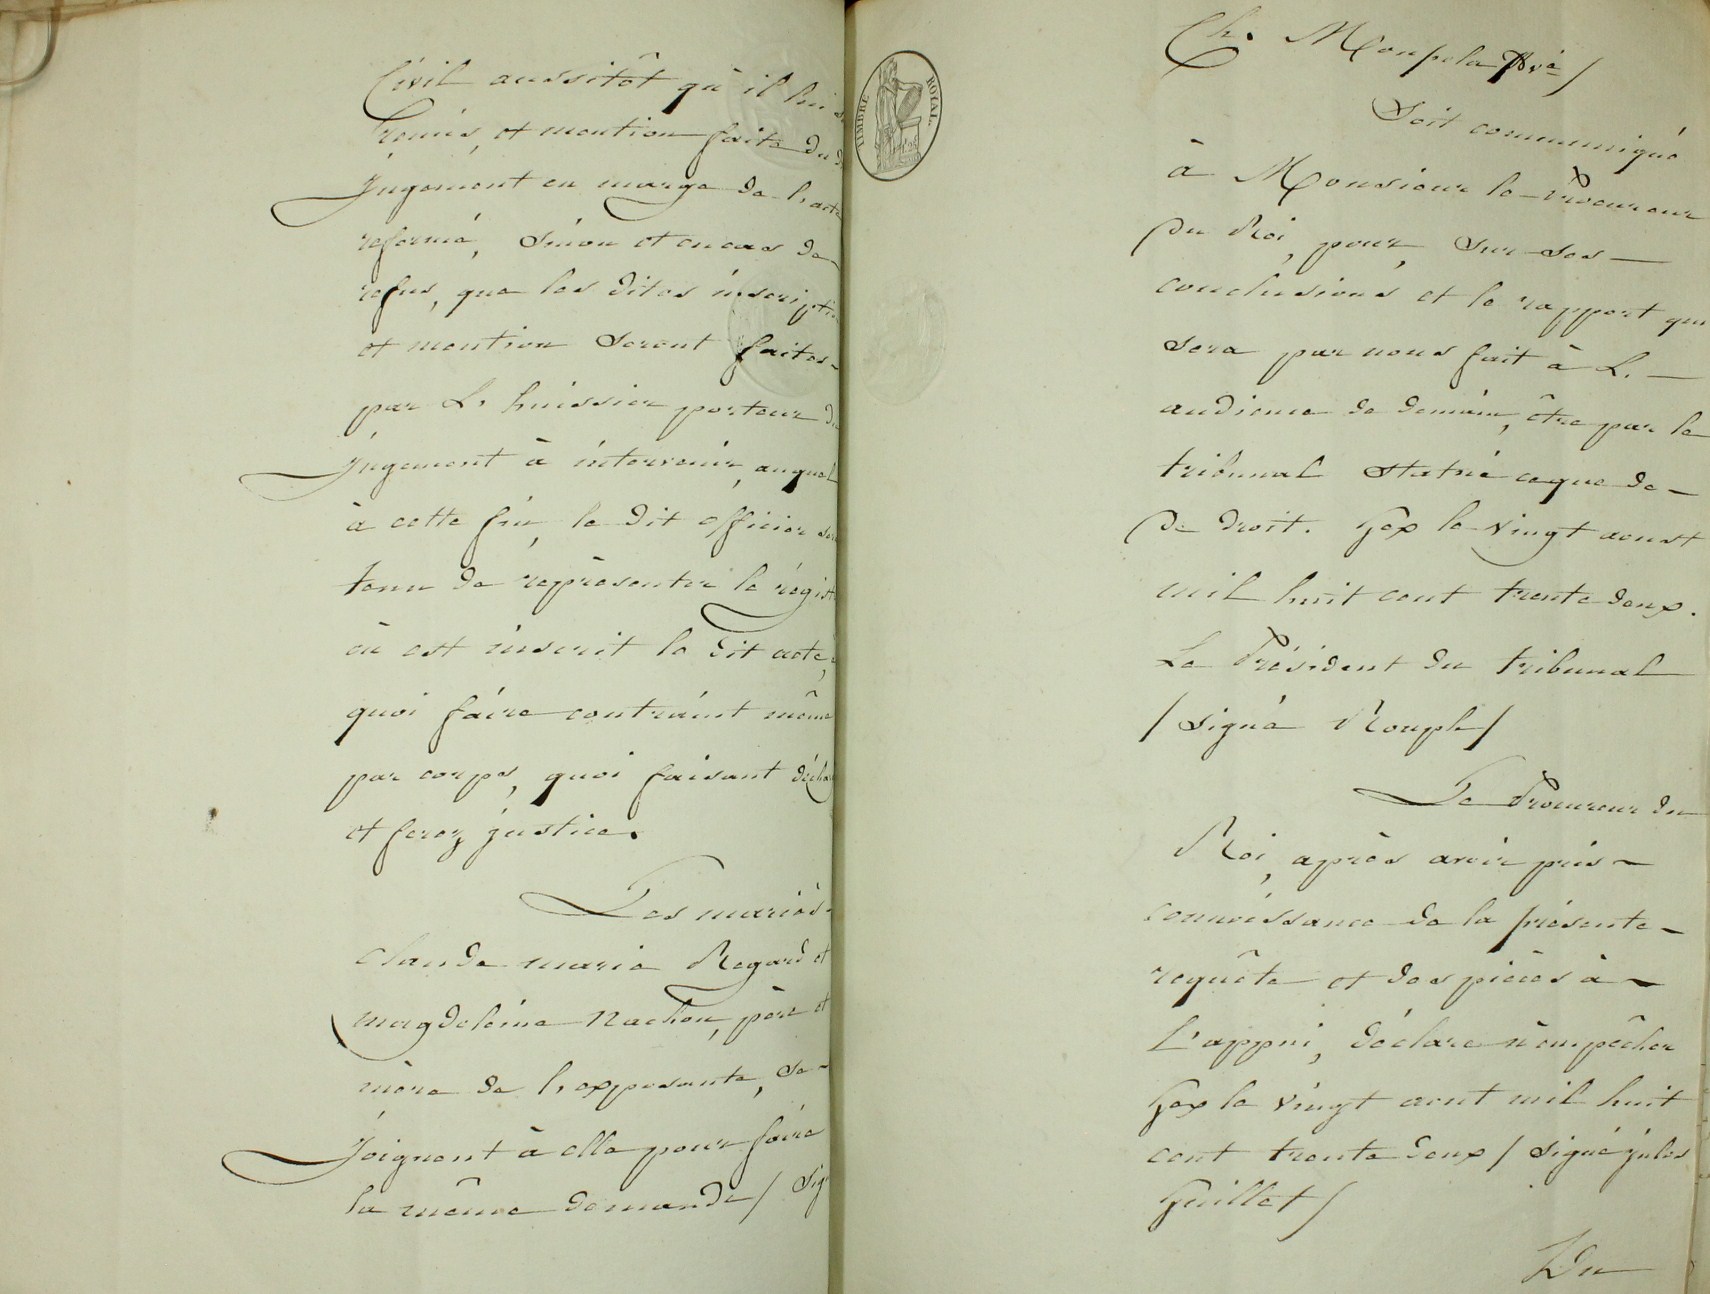 Civil aussitôt qu'il lui
remis, et mention faite du
jugement en marge de l'acte
reformé, sinon et en cas de
refus, que les dites inscription
et mention seront faites
par L'huissier porteur du
jugement à intervenir, auquel
à cette fin, le dit officier sera
tenu de représenter le régist
où est inscrit le dit acte, à
quoi faire contraint même
par corps, quoi faisant décha
et ferez justice.
Les mariés
Claude marie Regard et
magdeleine Nachon, père et
mère de l'exposante, se
joignent à elle pour faire
la même demande / Sig
TIMBRE ROYAL.
Ch. Monpela Avé /
Soit communiqué
à Monsieur le Procureur
du Roi, pour, sur ses
conclusions et le rapport qui
sera par nous fait à L.
audience de demain, être par le
tribunal statué ce que de
de droit. Gex le vingt aoust
mil huit cent trente deux.
Le Président du tribunal
/ signé Rouph /
Le Procureur du
Roi, après avoir pris
connaissance de la présente
requête et des pièces à
L'appui, déclare n'empêcher
Gex le vingt aout mil huit
cent trente deux / signé jules
Guillet /
Du